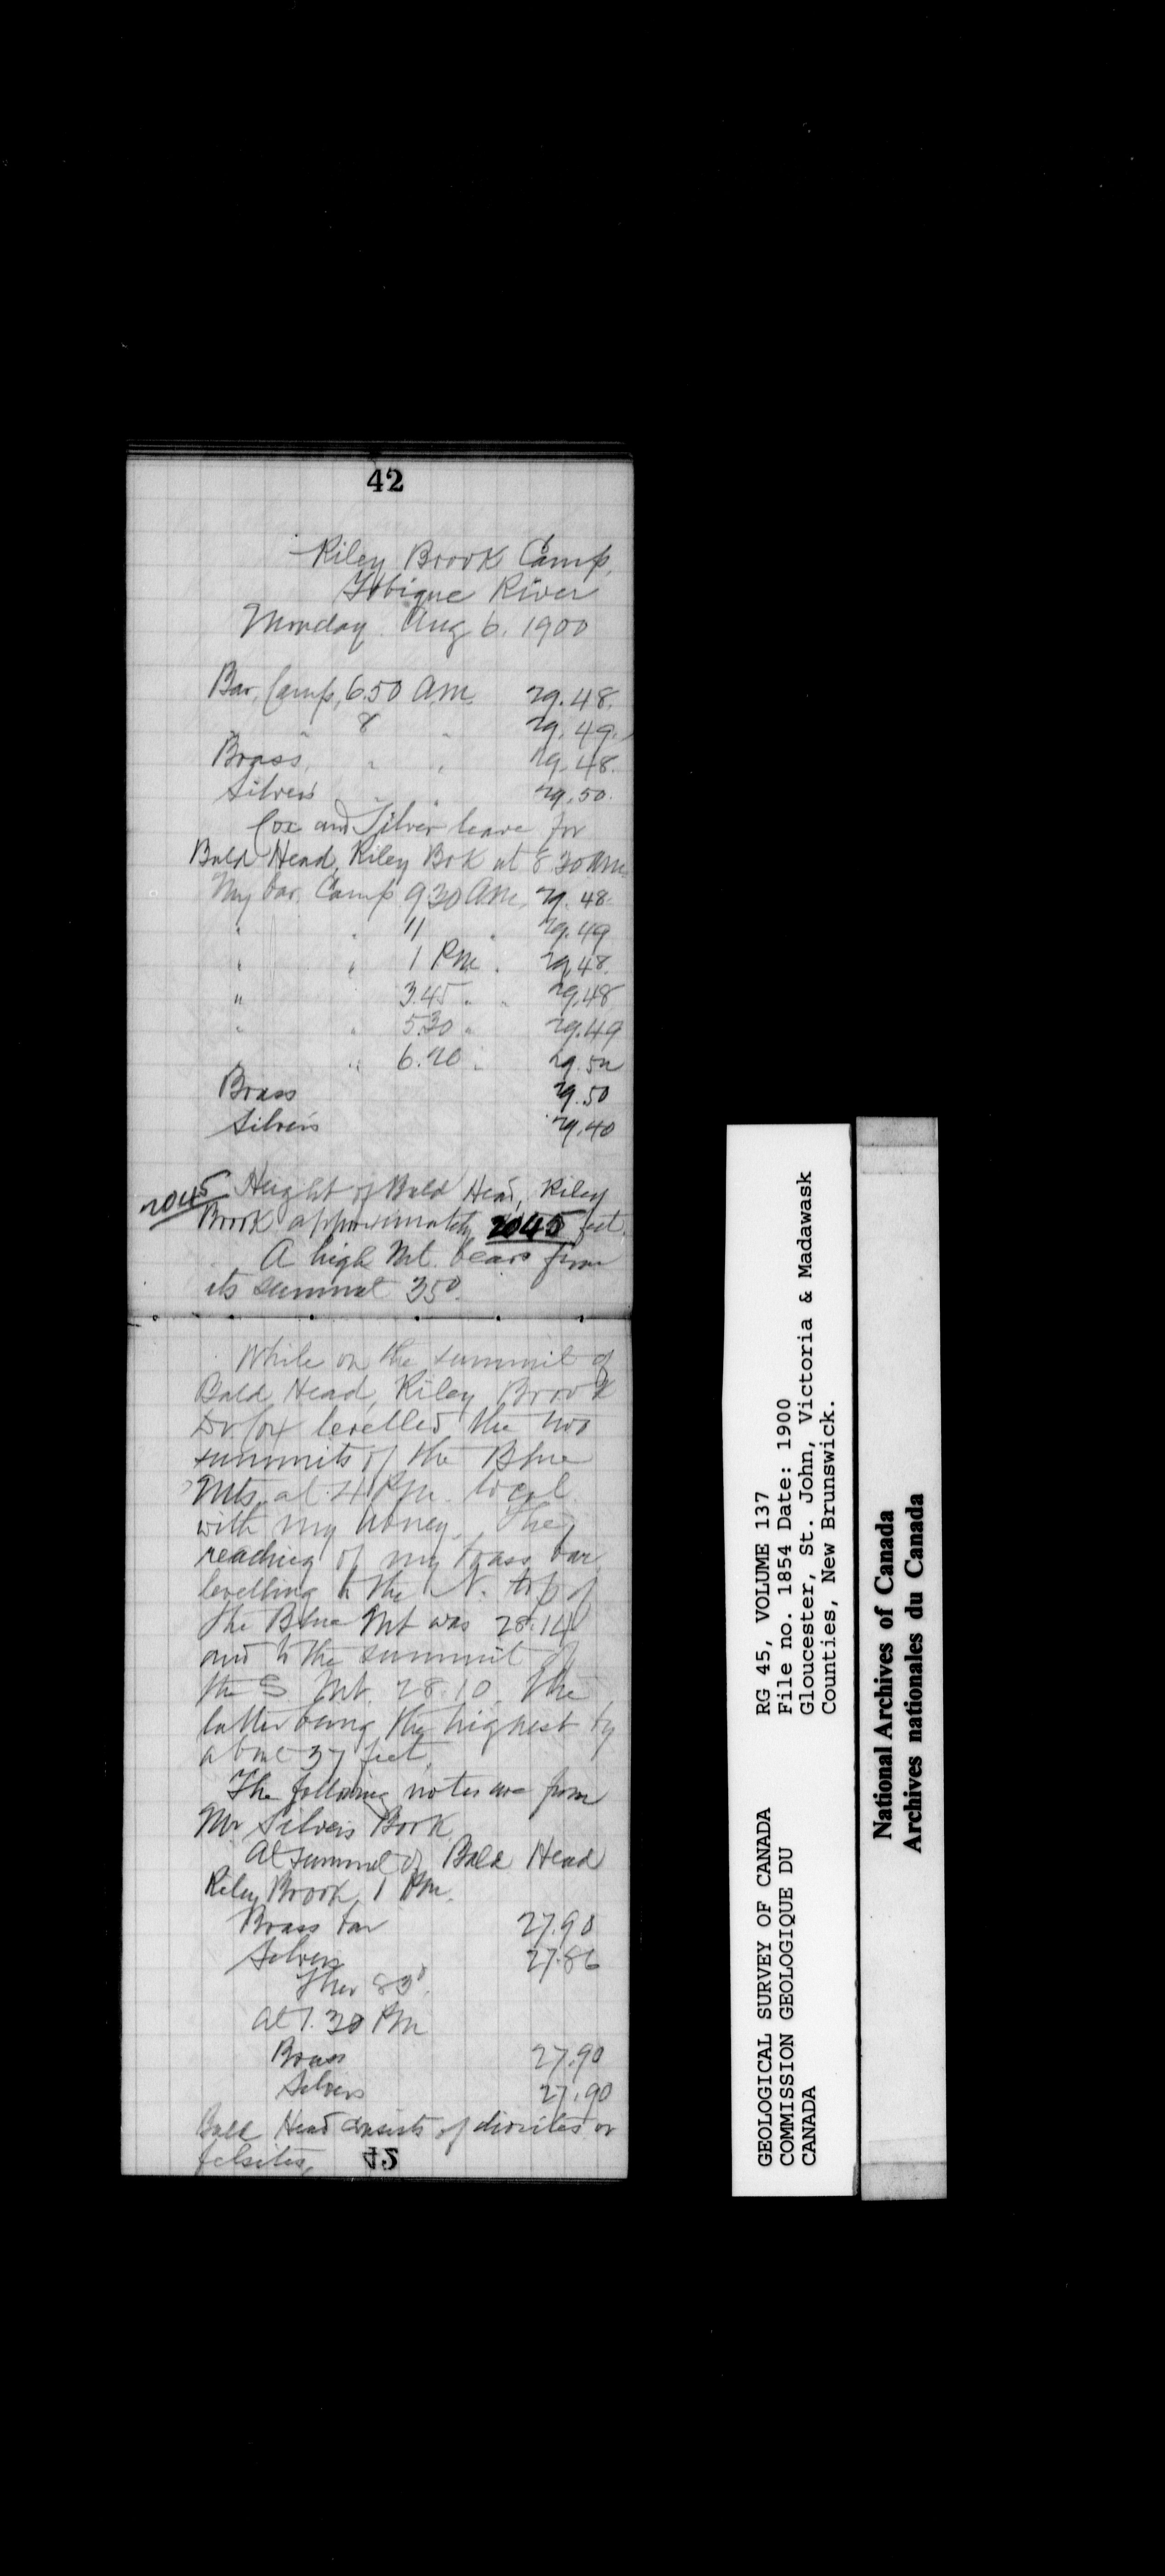 42
Riley Brook Camp,
Tobique River
Monday Aug 6. 1900
Bar. Camp, 6.50 A.M. 29.48.
" 8 " 29.49.
Brass, " " 29.48.
Silver's " " 29.50.
Cox and Silver leave for
Bald Head, Riley Bok at 8 30 am.
My bar. Camp 9.30 AM. 29.48.
" " 11 " 29.49
" " 1 P.M. 29.48.
" 3.45 " " 29.48
" " 5.30 " 29.49
" 6.20 " 29.52
Brass 29.50
Silver's 29.40
2045
Height of Bald Head, Riley
Brook approximately 2045 feet.
A high Mt. bears from
its summit 350.
While on the summit of
Bald Head, Riley Brook
Dr Cox levelled the two
summits of the Blue
Mts. at 4 P.m. local
with my Abney. The
reading of my brass bar
levelling to the N. top of
the Blue Mt was 28.14
and to the summit of
the S. Mt. 28.10. The
latter being the highest by
about 37 feet.
The following notes are from
Mr Silver's Book
At summit of Bald Head
Riley Brook, 1 Pm.
Brass bar 27.90
Silver's 27.86
Ther 83°.
At 1.30 Pm
Brass 27.90
Silvers 27.90
Bald Head consists of diorites or
felsites.
42
RG 45, VOLUME 137
File no. 1854 Date: 1900
Gloucester, St. John, Victoria & Madawask
Counties, New Brunswick.
GEOLOGICAL SURVEY OF CANADA
COMMISSION GEOLOGIQUE DU
CANADA
National Archives of Canada
Archives nationales du Canada